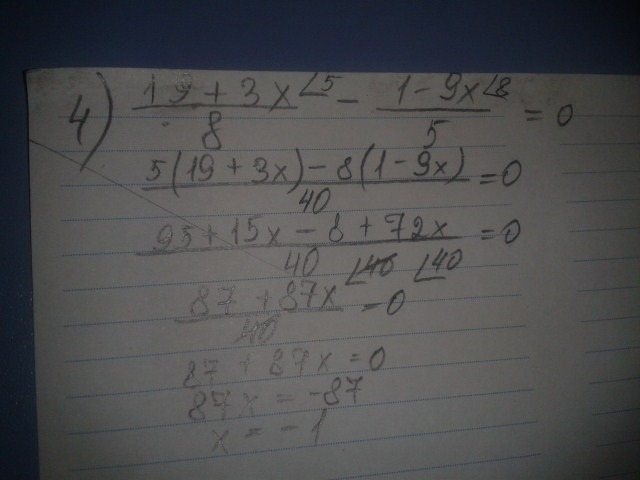 4) (19 + 3x)/8 ∠5 - (1 - 9x)/5 ∠8 = 0
(5(19 + 3x) - 8(1 - 9x))/40 = 0
(95 + 15x - 8 + 72x)/40 = 0
∠40 ∠40
(87 + 87x)/40 = 0
87 + 87x = 0
87x = -87
x = -1